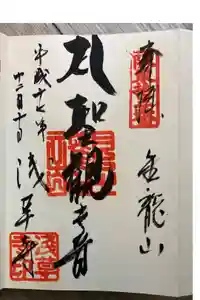 奉拝
金龍山
聖観世音
浅草寺
平成十七年
十二月十日